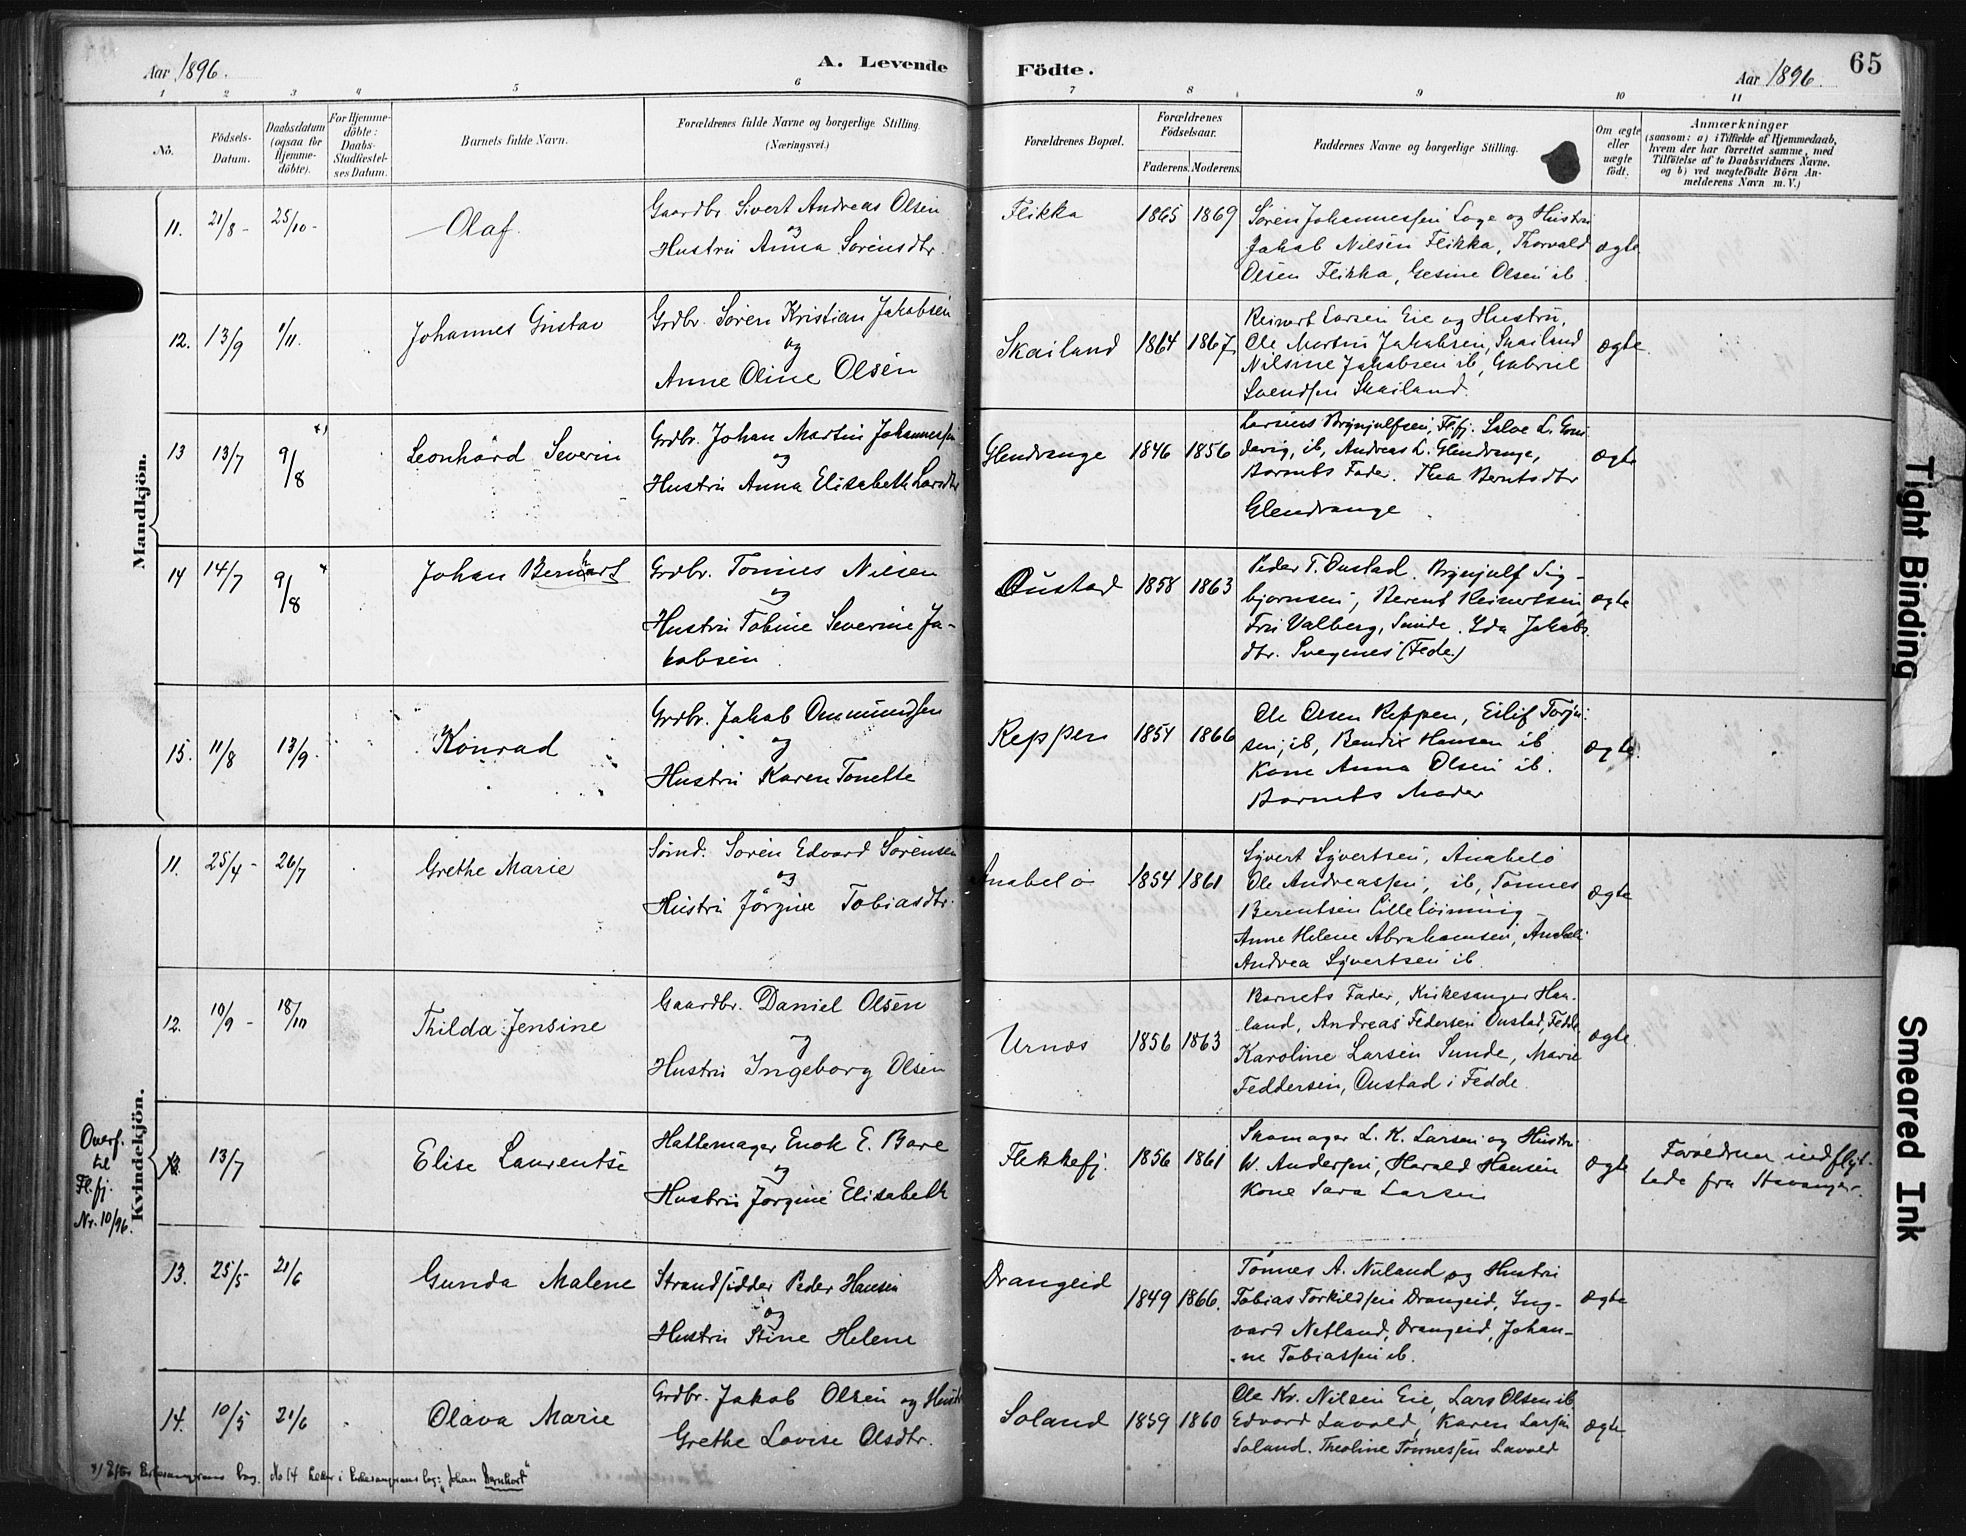 Aar 1896.
A. Levende
Födte.
Aar 1896.
65
1 2 3 4 5 6 7 8 9 10 11
No.
Födsels-
Datum.
Daabsdatum
(ogsaa for
Hjemme-
döbte).
For Hjemme-
döbte:
Daabs-
Stadfæstel-
ses Datum.
Barnets fulde Navn.
Forældrenes fulde Navne og borgerlige Stilling.
(Næringsvei.)
Forældrenes Bopæl.
Forældrenes
Födselsaar.
Faderens. Moderens.
Faddernes Navne og borgerlige Stilling.
Om ægte
eller
uægte
födt.
Anmærkninger
(saasom: a) i Tilfælde af Hjemmedaab,
hvem der har forrettet samme, med
Tilföielse af to Daabsvidners Navne,
og b) ved uægtefödte Börn An-
melderens Navn m. V.)
Mandkjön.
11. 21/8 - 25/10 - Olaf.
Gaardbr. Sivert Andreas Olsen
og
Hustru Anna Sørensdtr.
Flikka 1865 1869
Søren Johannessen Loge og Hustru
Jakob Nilsen Flikka, Thorvald
Olsen Flikka, Gesine Olsen ib
ægte
12. 13/9 1/11. Johannes Gustav
Grdbr. Søren Kristian Jakobsen
og
Anne Oline Olsen
Skailand 1864 1867
Reinert Larsen Eie og Hustru,
Ole Martin Jakobsen, Skailand
Nilsine Jakobsen ib, Gabriel
Svendsen Skailand.
ægte
13 13/7 9/8 x) Leonhard Severin
Grdbr. Johan Martin Johannessen
og
Hustru Anna Elisabeth Larsdtr
Glendrange 1846 1856
Larsens Brynjulfsen, Fl.fj. Salve L.
Andreas L. Glendrange,
Barnets Fader. Thea Berntsdtr
Glendrange
ægte
14 14/7 9/8 x Johan Bernhart
Grdbr. Tønnes Nilsen
og
Hustru Tobine Severine Ja-
kobsen.
Oustad 1858 1863
Peder T. Oustad. Brynjulf Sig-
bjørnsen, Berent Reinertsen,
Fru Valberg, Sunde. Ida Jakobs
dtr. Svegnes (Fede)
ægte
15. 11/8 13/9. Konrad
Grdbr. Jakob Ommundsen
og
Hustru Karen Tonette
Reppen 1854 1866
Ole Olsen Reppen, Eilif Torju-
sen, ib, Bendix Hansen ib.
Kone Anna Olsen ib.
Barnets Moder
ægte
Kvindekjön.
11. 25/4 - 26/7 Grethe Marie
Sømd. Søren Edvard Sørensen
og
Hustru Jørgine Tobiasdtr.
Anabelø 1854 1861
Syvert Syvertsen, Anabelø
Ole Andreassen, ib, Tønnes
Berentsen Lilleløining
Anne Helene Abrahamsen, Anabelø
Andrea Syvertsen ib.
ægte
12. 10/9 - 18/10 Thilda Jensine
Gaardbr. Daniel Olsen
og
Hustru Ingeborg Olsen
Urnes 1856 1863
Barnets Fader, Kirkesanger Hau-
land, Andreas Federsen Oustad, Fedde
Karoline Larsen Sunde, Marie
Feddersen, Oustad i Fedde.
ægte.
Overf.
til
Fl.fj.
Nr. 10/96.
13/7 Elise Laurentse
Hattemager Enok E. Bore
og
Hustru Jørgine Elisabeth
Flekkefj. 1856 1861
Skomager L. K. Larsen og Hustru
W. Andersen, Harald Hansen
Kone Sara Larsen
ægte
Forældrene indflyt-
tede fra Stavanger.
13. 25/5- 21/6 Gunda Malene
Strandsidder Peder Hansen
og
Hustru Stine Helene
Drangeid 1849 1866.
Tønnes A. Nuland og Hustru
Tobias Torkildsen Drangeid, Ing-
vard Netland, Drangeid, Johan-
ne Tobiassen ib.
ægte
14. 10/5 21/6 Olava Marie
Grdbr. Jakob Olsen og Hustr.
Grethe Lovise Olsdtr.
Soland 1859 1860
Ole Kr. Nilsen Eie, Lars Olsen ib
Edvard Lavold, Karen Larsen
Soland. Theoline Tønnessen Lavold
ægte
x) Efter Kirkesangerens bog. No 14 heder i Kirkesangerens bog: "Johan Bernhart"
Tight Binding
Smeared Ink